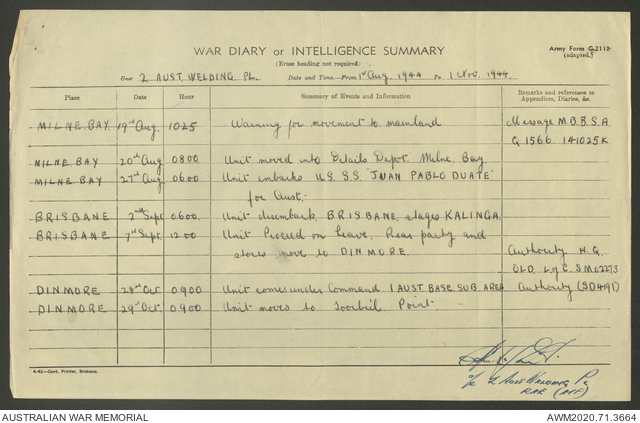 WAR DIARY or INTELLIGENCE SUMMARY
Army Form G.2112
(adapted.)
(Erase heading not required)
Unit 2 AUST. WELDING PL. Date and Time—From 1st Aug. 1944 To 1 Nov. 1944.
Place Date Hour Summary of Events and Information Remarks and references to Appendices, Diaries, &c.
MILNE BAY 19th Aug. 1025 Warning for movement to mainland Message M.B.B.S.A.
Q1566 141025K
MILNE BAY 20th Aug 0800 Unit moved into Details Depot Milne Bay
MILNE BAY 27th Aug 0600 Unit embarks U.S.S.S "JUAN PABLO DUATE"
for Aust.
BRISBANE 2nd Sept 0600 Unit disembark BRISBANE, stages KALINGA
BRISBANE 7th Sept. 1200 Unit Proceed on leave. Rear party and
stores move to DINMORE. Authority H.Q.
QLD. L of C. SM02273
DINMORE 29th Oct 0900 Unit comes under Command 1 AUST BASE SUB. AREA Authority (SD4191)
DINMORE 29th Oct. 0900 Unit moves to Toorbul Point.
4-43—Govt. Printer, Brisbane.
O/c 2 AUST WELDING PL
RAE (AIF)
AUSTRALIAN WAR MEMORIAL
AWM2020.71.3664